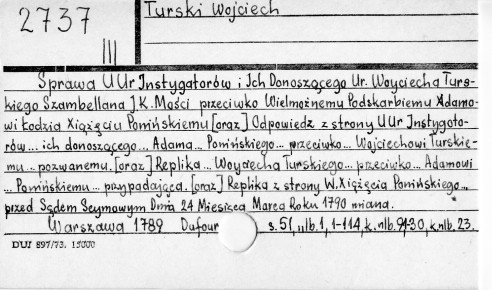 2737
III
Turski Wojciech
Sprawa UUr Instygatorów i Ich Donoszącego Ur. Woyciecha Turs-
kiego Szambellana J.K. Mości przeciwko Wielmożnemu Podskarbiemu Adamo-
wi Łodzia Xiążęciu Ponińskiemu [oraz] Odpowiedz z strony UUr Instygato-
rów... ich donoszącego... Adama... Ponińskiego... przeciwko... Wojciechowi Turskie-
mu... pozwanemu. [oraz] Replika... Woyciecha Turskiego... przeciwko... Adamowi
... Ponińskiemu... przypadająca. [oraz] Replika z strony W. Xiążęcia Ponińskiego...
przed Sądem Seymowym Dnia 24 Miesiąca Marca Roku 1790 miana.
Warszawa 1789 Dufour s. 51, nlb. 1, 1-114, k. nlb. 23.
DUJ 897/73. 15000